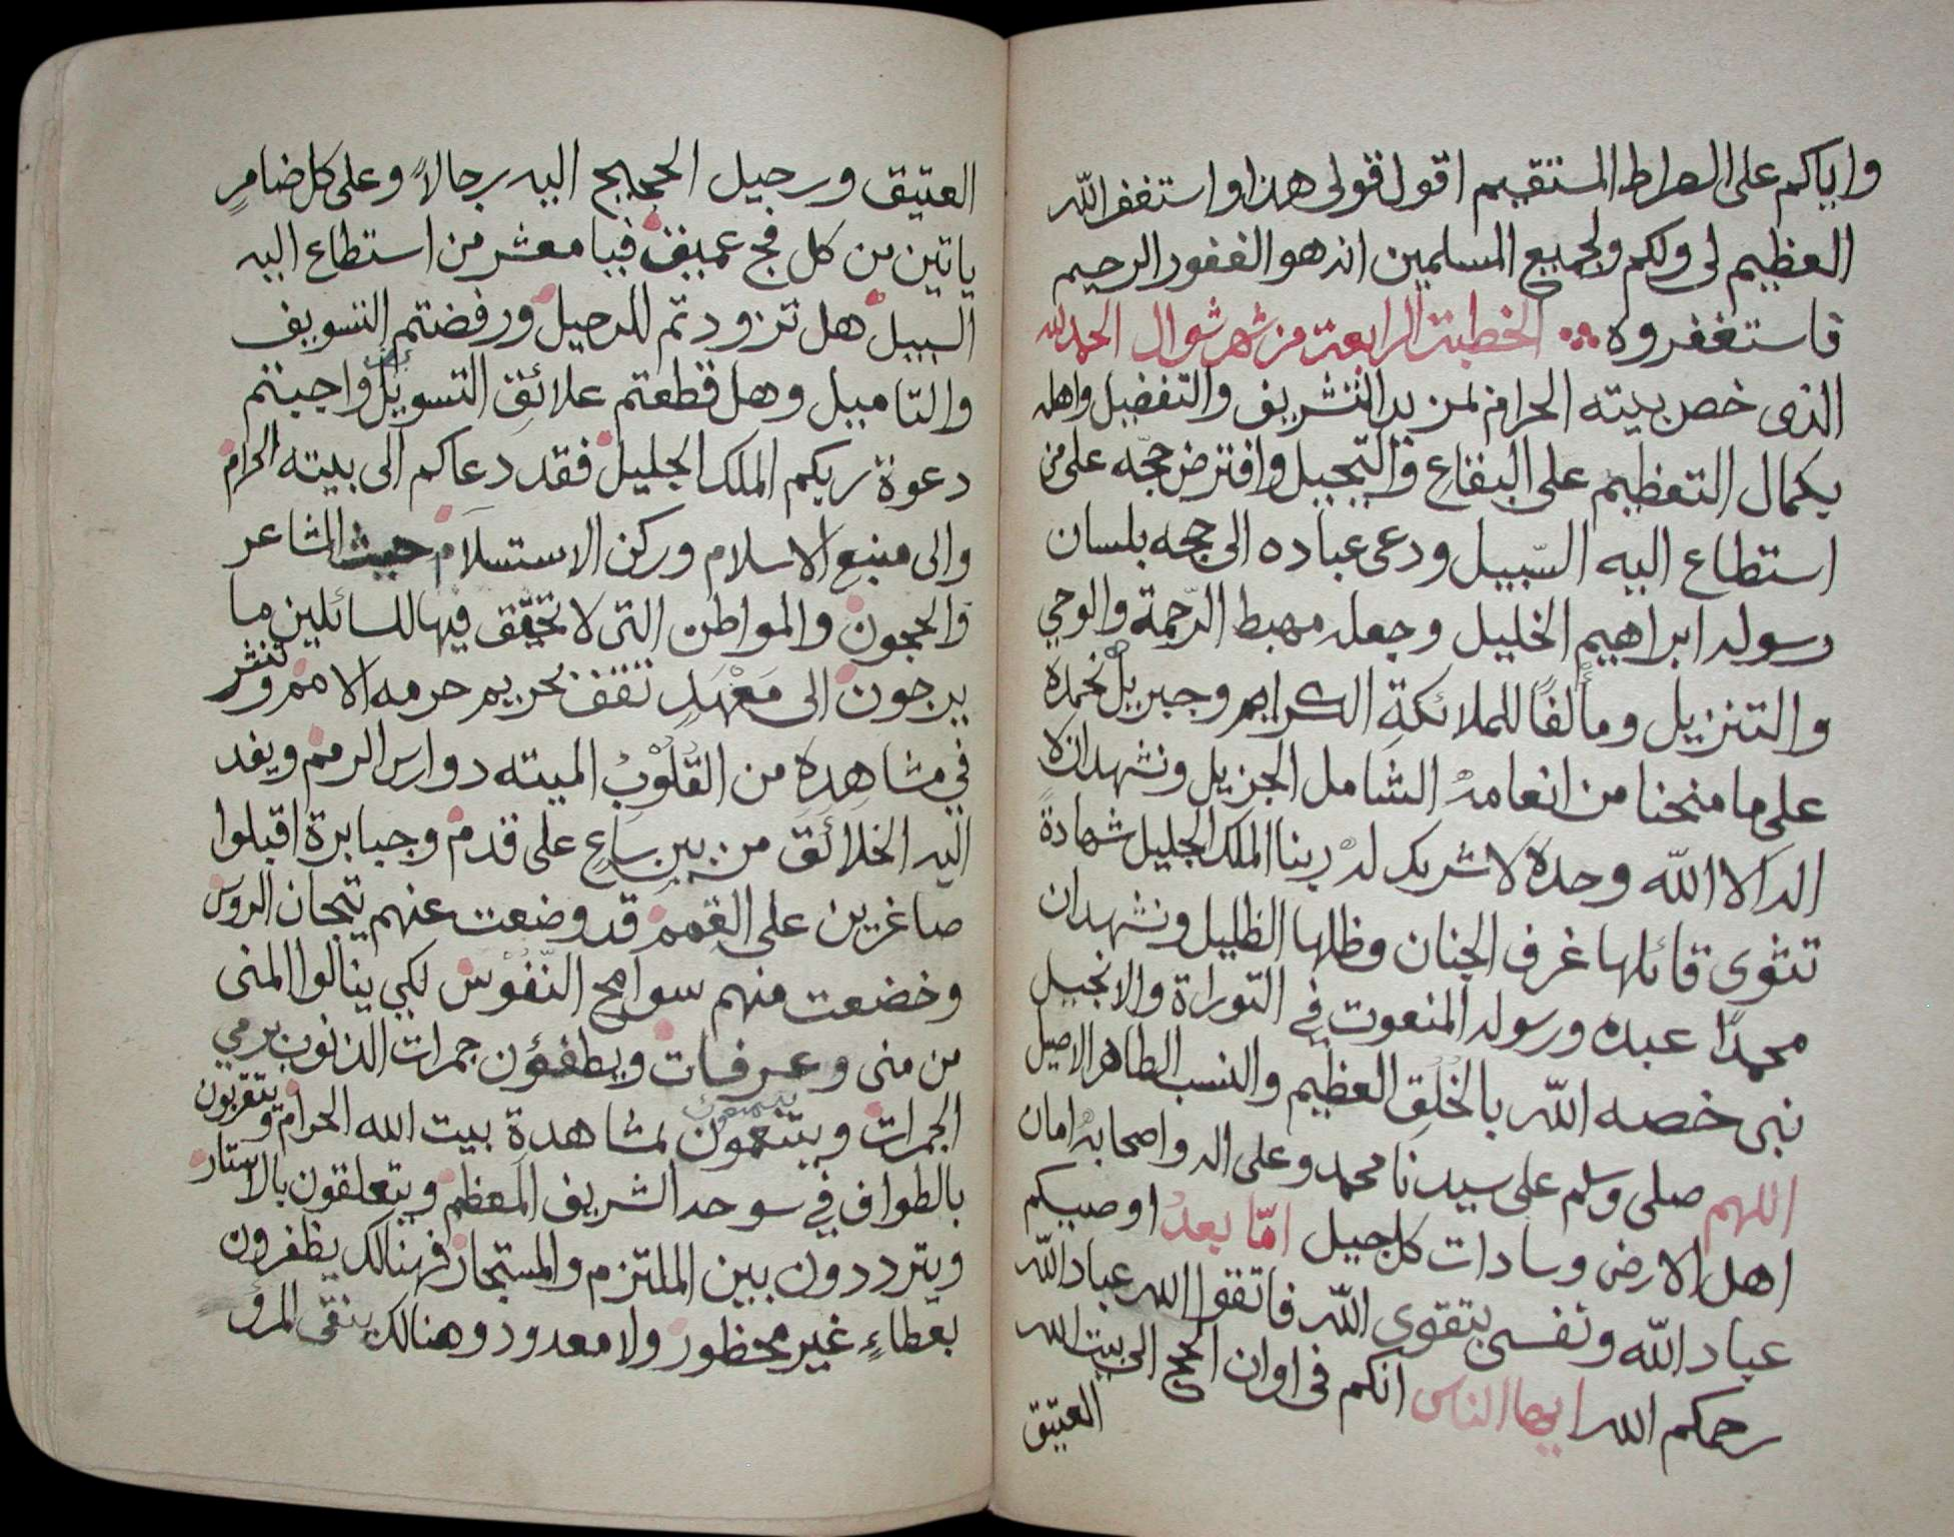 واياكم على الصراط المستقيم اقول قولى هذا واستغفر الله
العظيم لى ولكم ولجميع المسلمين انه هو الغفور الرحيم
فاستغفروه الخطبة الرابعة من شهر شوال الحمد لله
الذى خص بيته الحرام بمزيد التشريف والتفضيل واهله
بكمال التعظيم على البقاع والتبجيل وافترض حجّه على من
استطاع اليه السّبيل ودعى عباده الى حجه بلسان
رسوله ابراهيم الخليل وجعله مهبط الرّحمة والوحي
والتنزيل ومألفًا للملائكةِ الكرام وجبريل نحمده
على ما منحنا من انعامه الشامل الجزيل ونشهد ان لا
اله الا الله وحده لا شريك له ربنا الملك الجليل شهادةً
تثوى قائلها غرف الجنان وظلها الظليل ونشهد ان
محمدًا عبده ورسوله المنعوت في التوراة والانجيل
نبى خصه الله بالخُلُقِ العظيم والنسب الطاهر الاصيل
اللهم صلى وسلم على سيدنا محمد وعلى اله واصحابه امان
اهل الارض وسادات كل جيل امّا بعدُ اوصيكم
عباد الله ونفسى بتقوى الله فاتقوا الله عباد الله
رحمكم الله ايها الناس انكم فى اوان الحج الى بيت الله
العتيق
العتيق ورحيل الحجيج اليه رجالاً وعلى كل ضامرٍ
ياتين من كل فج عميق فيا معشر من استطاع اليه
السبيل هل تزودتم للرحيل ورفضتم التسويف
والتاميل وهل قطعتم علائقِ التسويل واجبتم
دعوة ربكم الملك الجليل فقد دعاكم الى بيته الحرام
والى منبع الاسلام وركن الاستسلام حيث المشاعر
والحجون والمواطن التى لا تحقّق فيها للسائلين ما
يرجون الى مَعْهَدٍ تقف بحريم حرمه الامم وتنشر
في مشاهدِهِ من القُلُوْبُ الميته دوارس الرمم ويفد
اليه الخلائق من بين ساعٍ على قدم وجبابرة اقبلوا
صاغرين على القمم قد وضعت عنهم تيجان الروس
وخضعت منهم سوامح النّفُوْس لكي ينالوا المنى
من منى وعرفات ويطفؤن جمرات الذنوب برمي
الجمرات ويتنعمون بمشاهدة بيت الله الحرام ويتقربون
بالطواف في سوحه الشريف المعظم ويتعلقون بالاستار
ويترددون بين الملتزم والمستجار فهنالك يظفرون
بعطاءٍ غير محظور ولا معدود وهنالك ينقى المرؤ